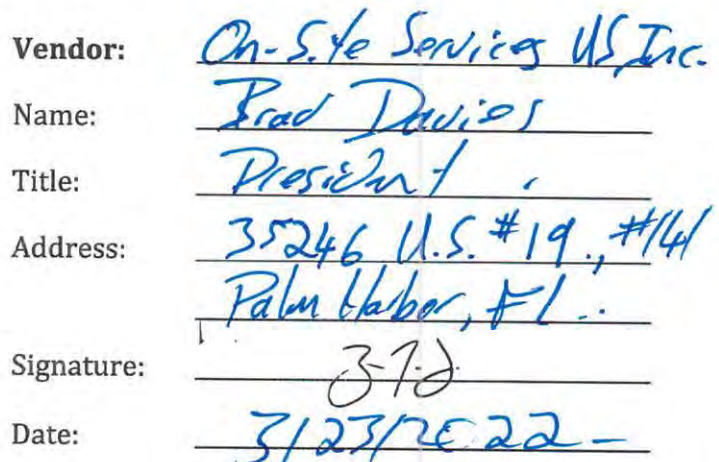 Vendor: On-Site Services US, Inc.
Name: Brad Davies
Title: President
Address: 35246 U.S. #19., #141
Palm Harbor, Fl.
Signature:
Date: 3/23/2022